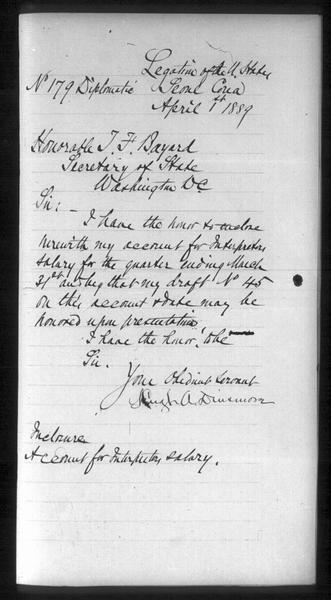 Legation of the U. States
Nº 179 Diplomatic Seoul Corea
April 1st 1889
Honorable T. F. Bayard
Secretary of State
Washington D.C.
Sir: –
I have the honor to enclose
herewith my account for Interpreters
salary for the quarter ending March
31st and beg that my draft Nº 45
on this account & date may be
honored upon presentation.
I have the honor, to be
Sir.
Your Obedient Servant
Hugh A. Dinsmore
Inclosure
Account for Interpreters salary.